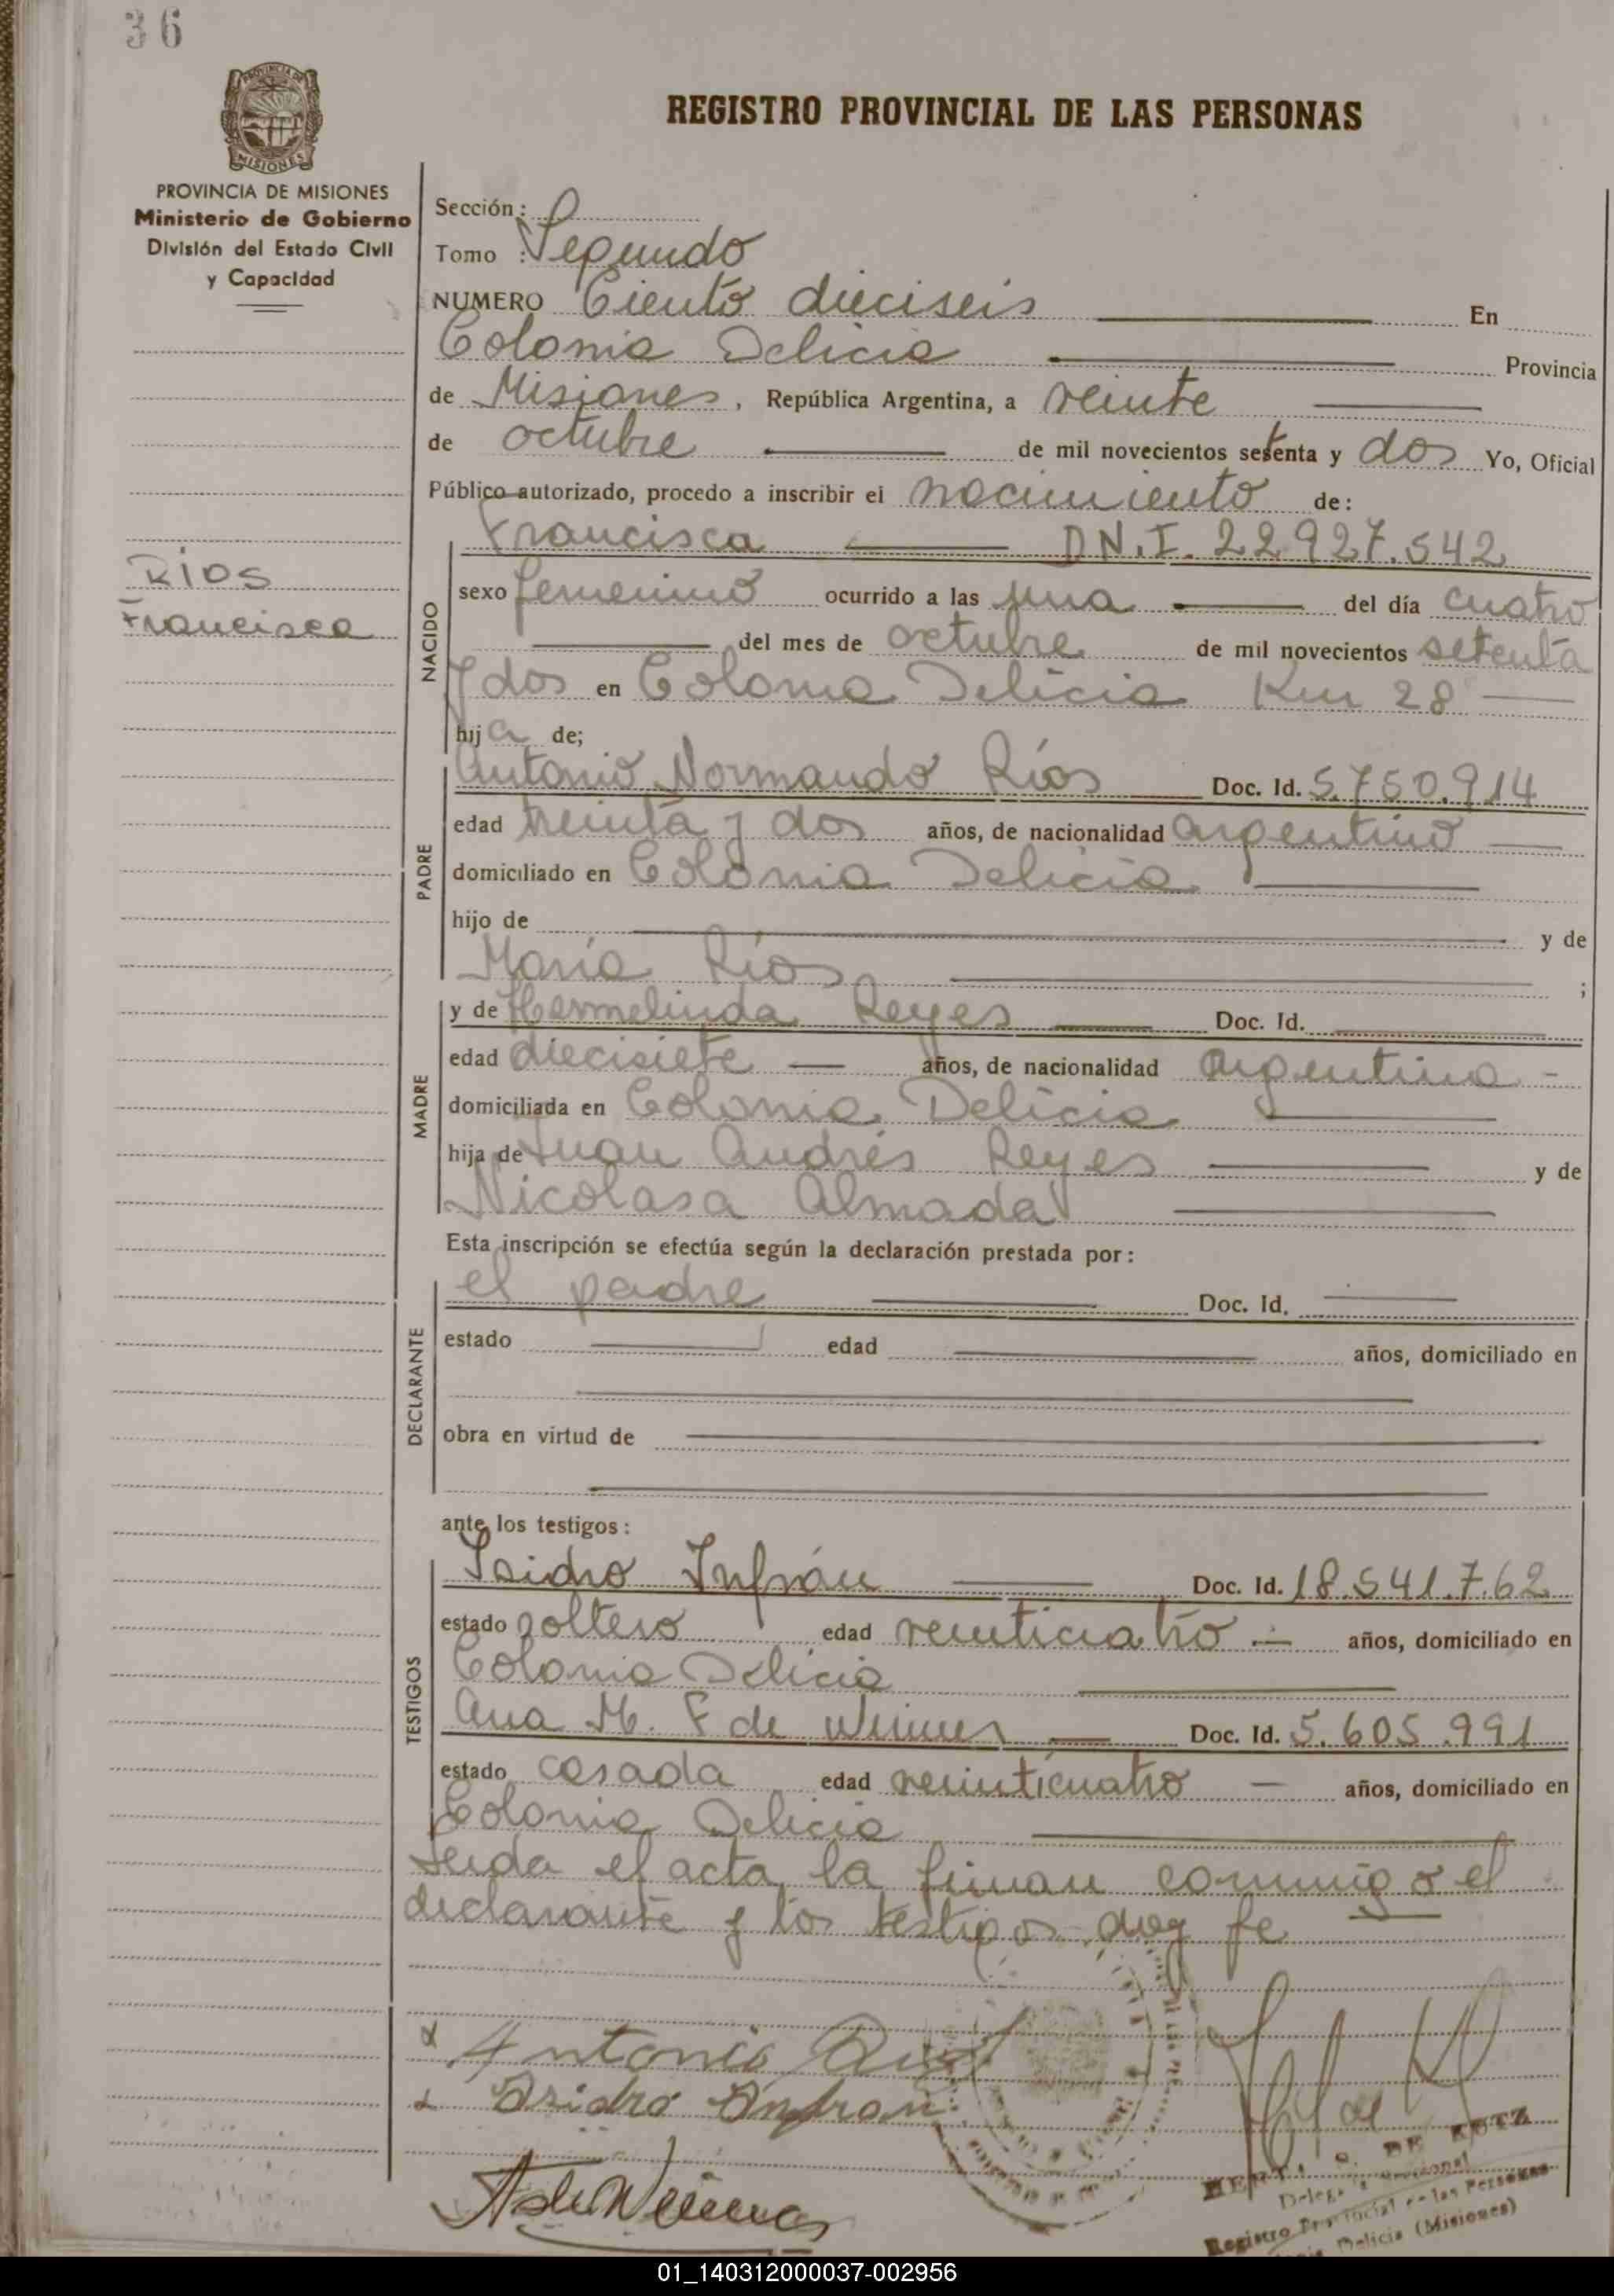 36
PROVINCIA DE MISIONES
Ministerio de Gobierno
División del Estado Civil
y Capacidad
REGISTRO PROVINCIAL DE LAS PERSONAS
Sección:
Tomo : Segundo
NUMERO Ciento dieciseis En
Colonia Delicia Provincia
de Misiones, República Argentina, a veinte
de octubre de mil novecientos setenta y dos Yo, Oficial
Público autorizado, procedo a inscribir el nacimiento de:
Francisca D.N.I. 22.927.542
RIOS
Francisca
NACIDO
sexo femenino ocurrido a las una del día cuatro
del mes de octubre de mil novecientos setenta
y dos en Colonia Delicia Km 28
hija de;
PADRE
Antonio Normando Ríos Doc. Id. 5.750.914
edad treinta y dos años, de nacionalidad argentino
domiciliado en Colonia Delicia
hijo de y de
María Ríos ;
MADRE
y de Hermelinda Reyes Doc. Id.
edad diecisiete años, de nacionalidad argentina
domiciliada en Colonia Delicia
hija de Juan Andrés Reyes y de
Nicolasa Almada
Esta inscripción se efectúa según la declaración prestada por:
DECLARANTE
el padre Doc. Id.
estado edad años, domiciliado en
obra en virtud de
ante los testigos:
TESTIGOS
Isidro Infrán Doc. Id. 18.541.762
estado soltero edad veinticiatro años, domiciliado en
Colonia Delicia
Ana M. F de Doc. Id. 5.605.991
estado casada edad veinticuatro años, domiciliado en
Colonia Delicia
Leida el acta, la firman conmigo el
declarante y los testigos doy fe
Antonio
Isidro Infran
DE KOTZ
Registro Provincial de las Personas
Delicia (Misiones)
01_140312000037-002956